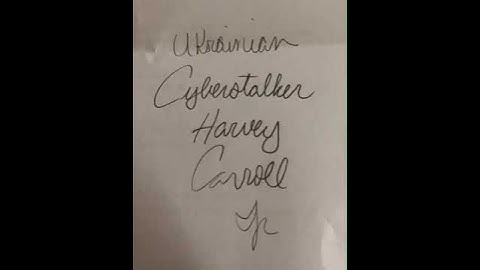 Ukrainian
Cyberstalker
Harvey
Carroll
Jr